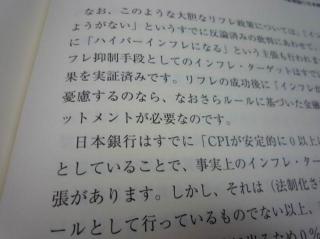 なお、このような大胆なリフレ政策については、「イン
ようがない」というすでに反論済みの批判にあわせて、
に「ハイパーインフレになる」という主張も行われます
フレ抑制手段としてのインフレ・ターゲットはすでに
果を実証済みです。リフレの成功後に「インフレが
憂慮するのなら、なおさらルールに基づいた金融
ットメントが必要なのです。
日本銀行はすでに「CPIが安定的に0以上に
としていることで、事実上のインフレ・ター
張があります。しかし、それは（法制化さ
ールとして行っているものでない以上、
ため0％